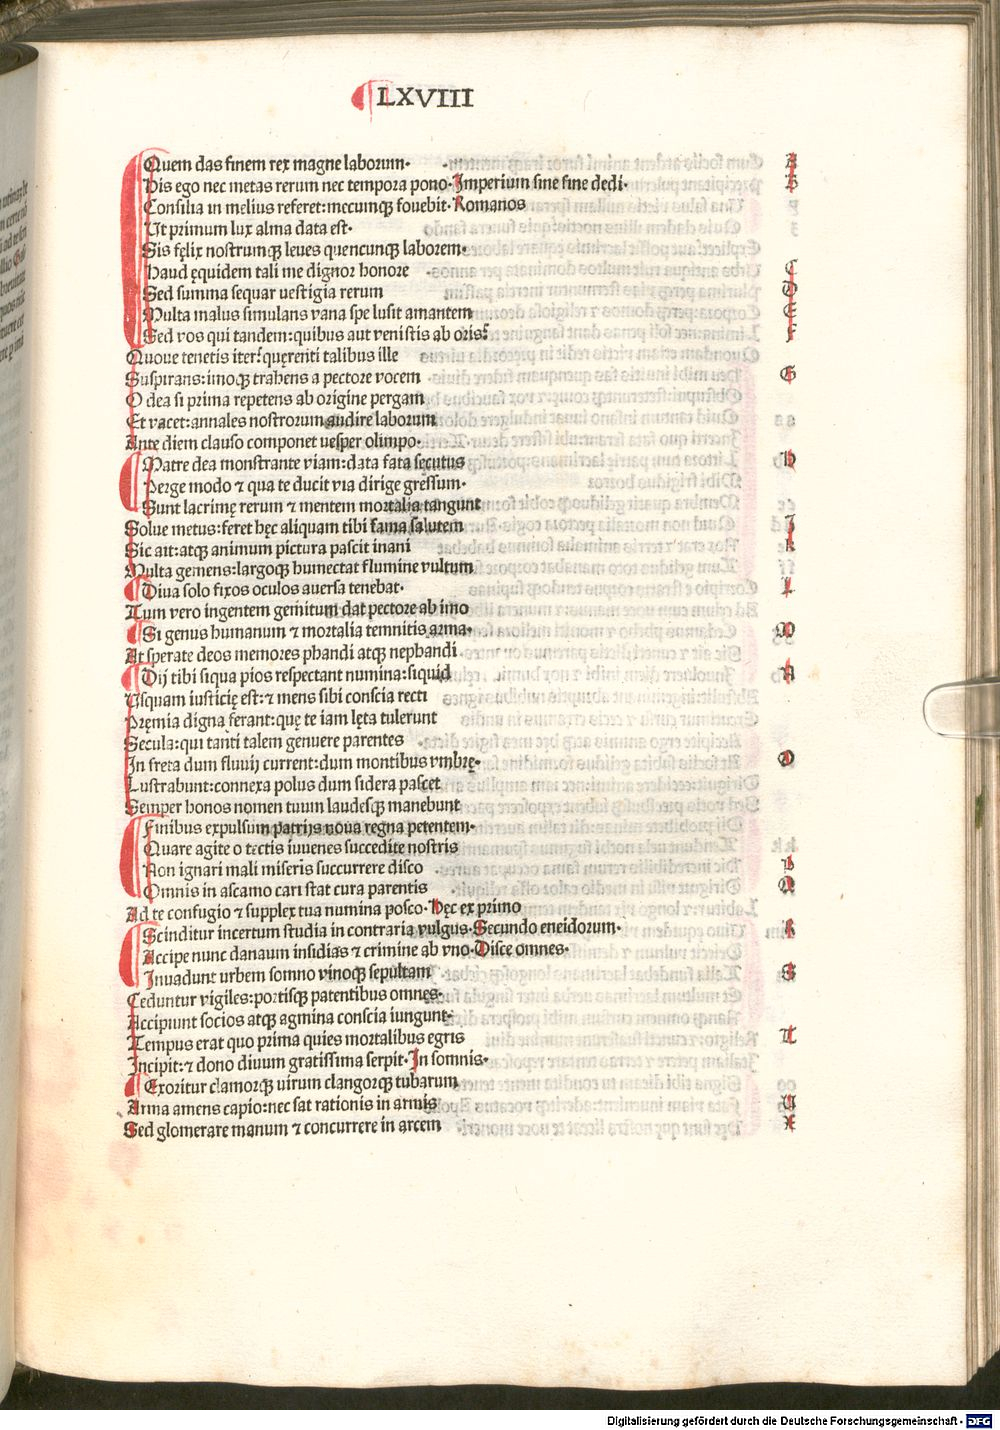 LXVIII
Quem das finem rex magne laborum· A
His ego nec metas rerum nec tempora pono·Imperium sine fine dedi· B
Consilia in melius referet:mecumqʒ fouebit·Romanos
Ut primum lux alma data est·
Sis fęlix nostrumqʒ leues quencunqʒ laborem·
Haud ęquidem tali me dignor honore C
Sed summa sequar uestigia rerum D
Multa malus simulans vana spe lusit amantem E
Sed vos qui tandem:quibus aut venistis ab oris? F
Quoue tenetis iter?quęrenti talibus ille
Suspirans:imoqʒ trahens a pectore vocem G
O dea si prima repetens ab origine pergam
Et vacet:annales nostrorum audire laborum
Ante diem clauso componet uesper olimpo·
Matre dea monstrante viam:data fata sęcutus H
Perge modo ⁊ qua te ducit via dirige gressum·
Sunt lacrimę rerum ⁊ mentem mortalia tangunt
Solue metus:feret hęc aliquam tibi fama salutem J
Sic ait:atqʒ animum pictura pascit inani K
Multa gemens:largoqʒ humectat flumine vultum
Diua solo fixos oculos auersa tenebat· L
Tum vero ingentem gemitum dat pectore ab imo
Si genus humanum ⁊ mortalia temnitis arma· M
At sperate deos memores phandi atqʒ nephandi
Dij tibi siqua pios respectant numina:siquid N
Usquam iusticię est:⁊ mens sibi conscia recti
Pręmia digna ferant:quę te iam lęta tulerunt
Secula:qui tanti talem genuere parentes
In freta dum fluuij current:dum montibus vmbrę· O
Lustrabunt:connexa polus dum sidera pascet
Semper honos nomen tuum laudesqʒ manebunt
Finibus expulsum patrijs noua regna petentem·
Quare agite o tectis iuuenes succedite nostris
Non ignari mali miseris succurrere disco P
Omnis in ascamo cari stat cura parentis Q
Ad te confugio ⁊ supplex tua numina posco·Hęc ex primo
Scinditur incertum studia in contraria vulgus·Secundo eneidorum· R
Accipe nunc danaum insidias ⁊ crimine ab vno·Disce omnes·
Inuadunt urbem somno vinoqʒ sepultam S
Ceduntur vigiles:portisqʒ patentibus omnes·
Accipiunt socios atqʒ agmina conscia iungunt·
Tempus erat quo prima quies mortalibus egris T
Incipit:⁊ dono diuum gratissima serpit·In somnis·
Exoritur clamorqʒ uirum clangorqʒ tubarum
Arma amens capio:nec sat rationis in armis U
Sed glomerare manum ⁊ concurrere in arcem X
Digitalisierung gefördert durch die Deutsche Forschungsgemeinschaft - DFG